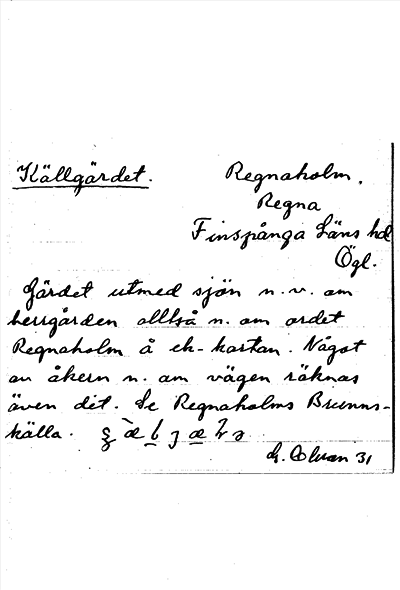 Källgärdet.
Regnaholm.
Regna
Finspånga Läns hd
Ögl.
Gärdet utmed sjön n.v. om
herrgården alltså n. om ordet
Regnaholm å ek-kartan. Något
av åkern n. om vägen räknas
även dit. Se Regnaholms Brunns-
källa.
31